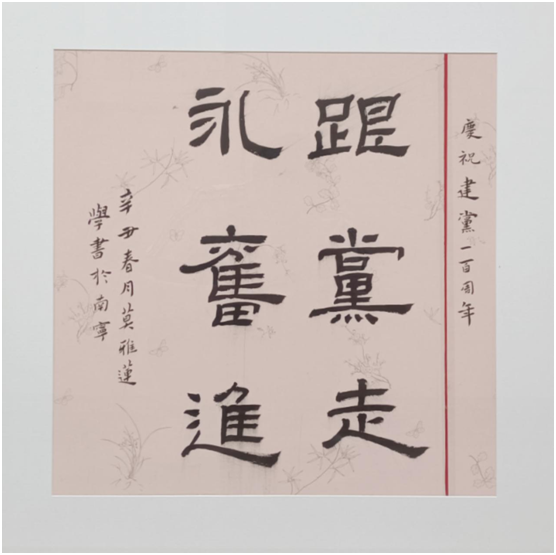 慶祝建黨一百周年
跟黨走
永奮進
辛丑春月莫雅蓮
學書於南寧